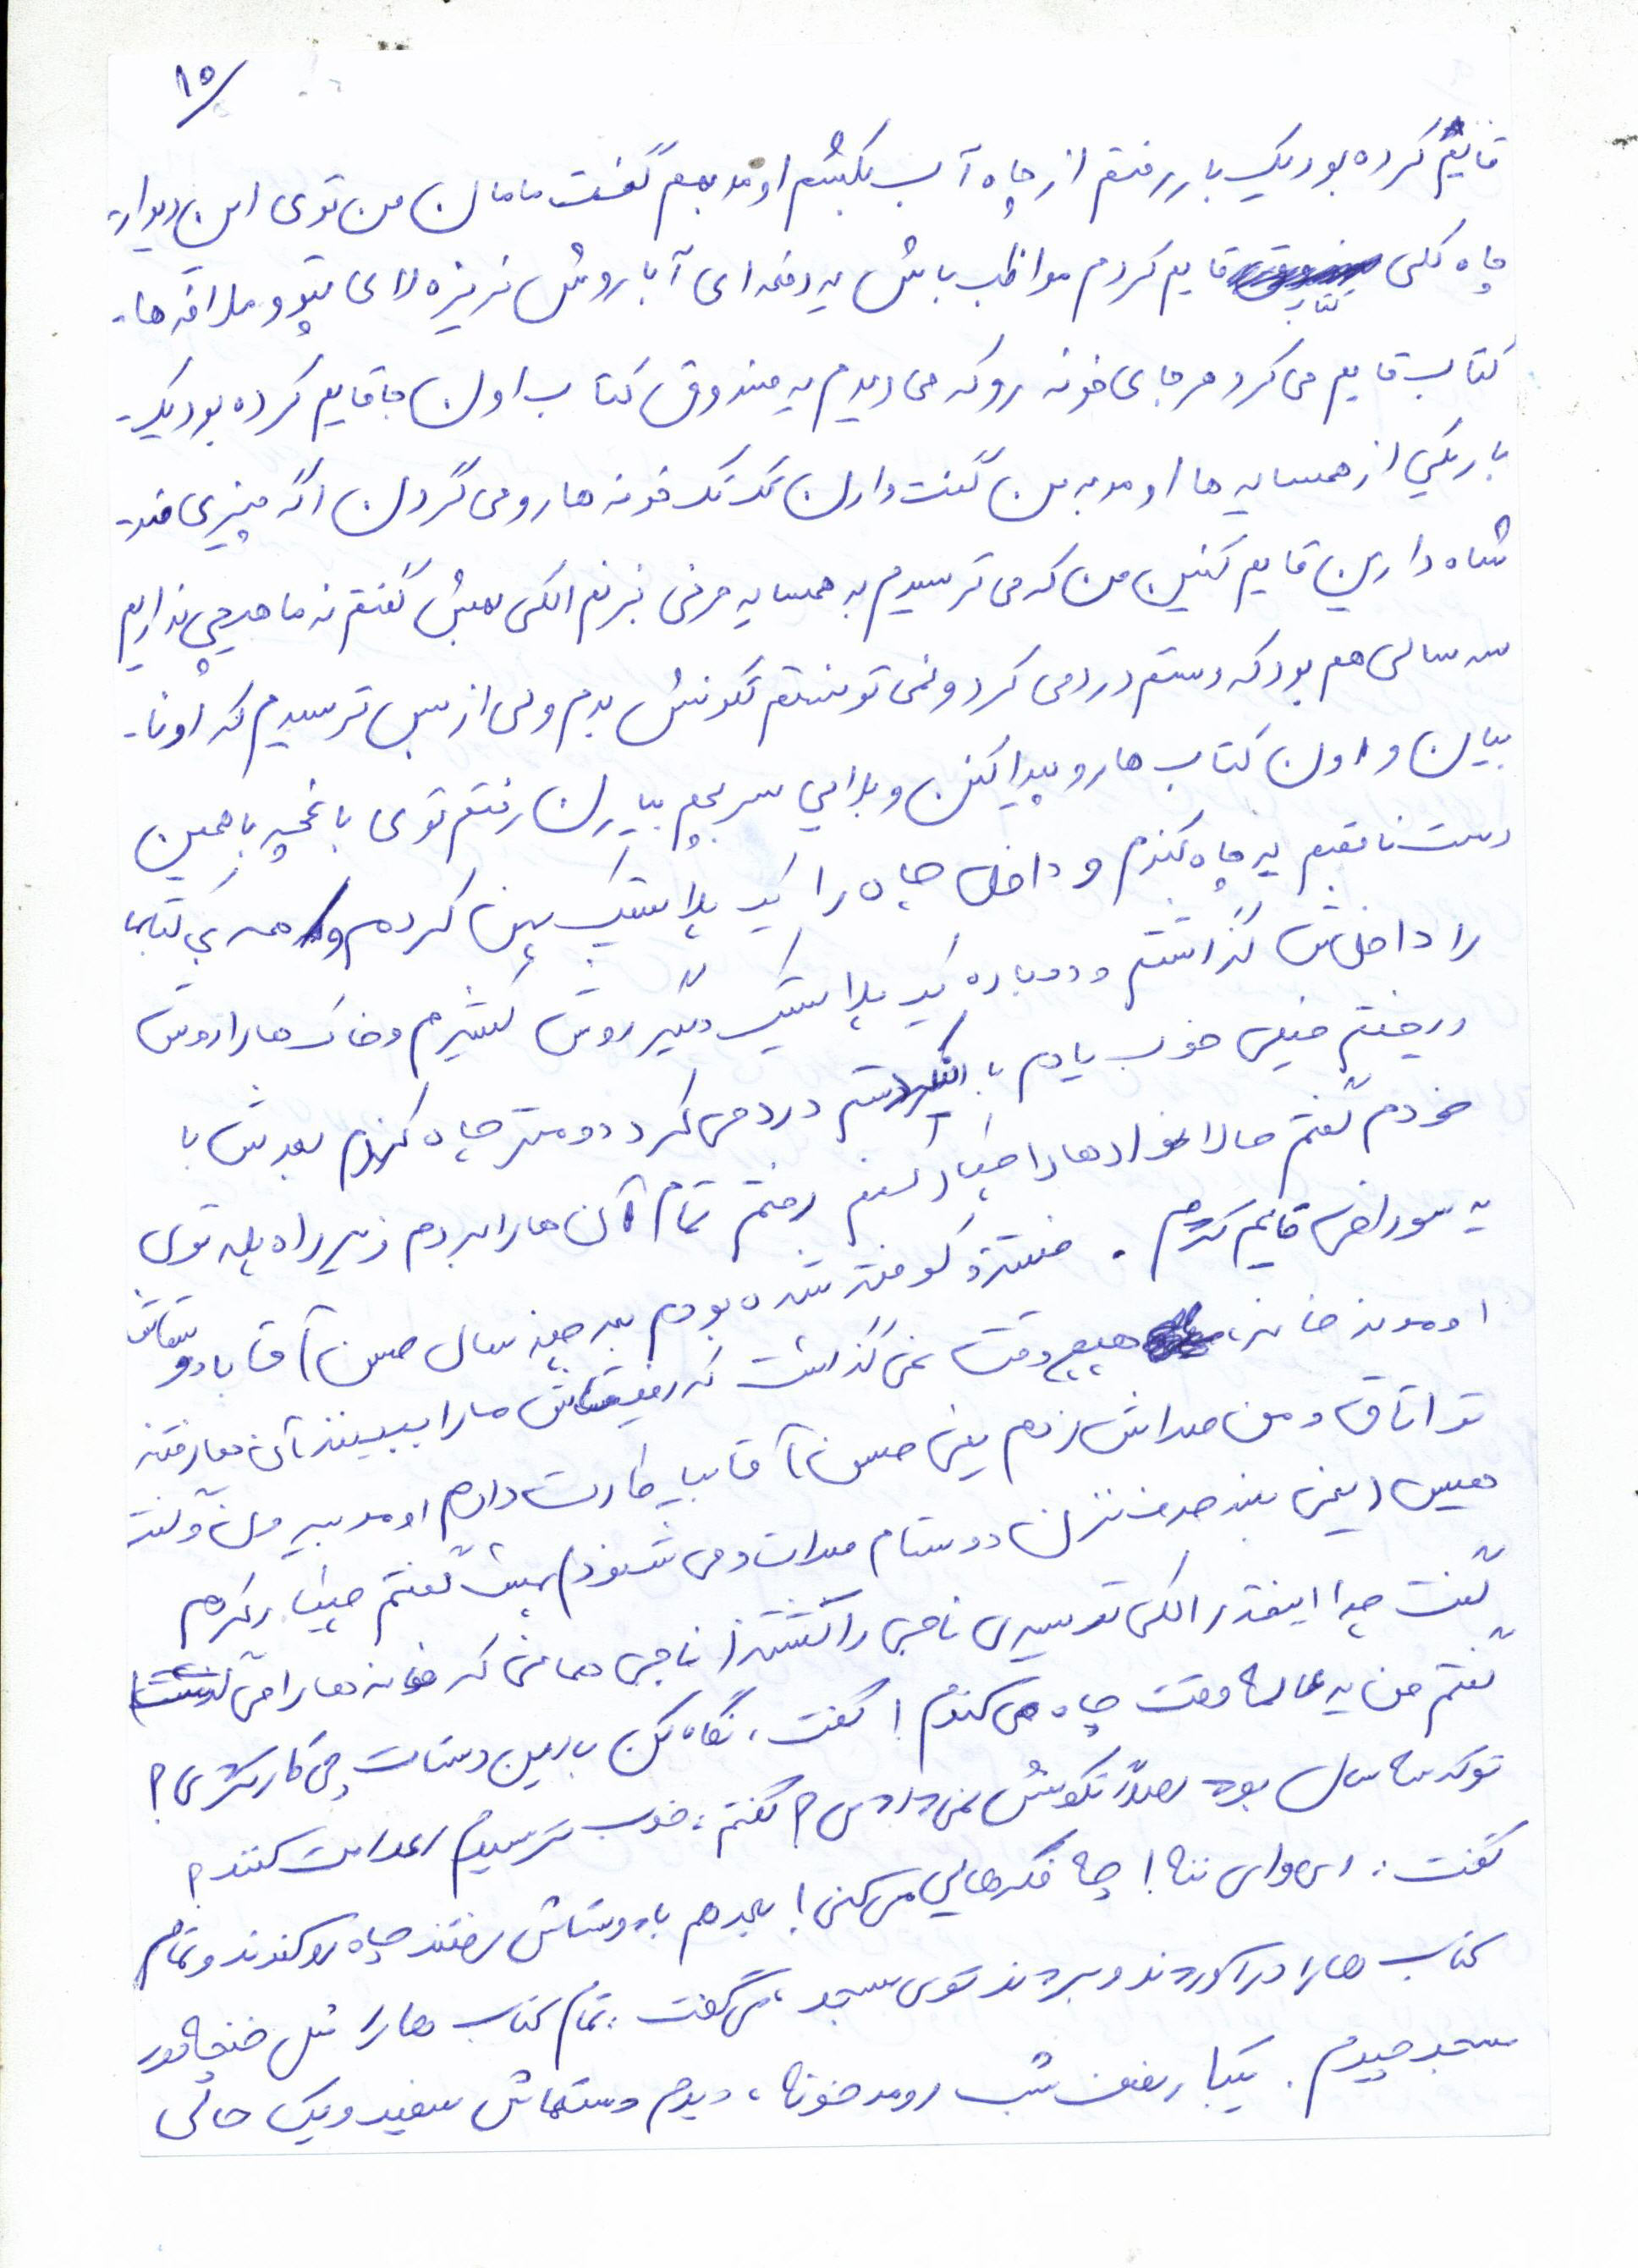 ۱۵/
قایم کرده بود یک بار رفتم از چاه آب بکشم اومد بهم گفت مامان من توی این دیوار
چاه کلی کتاب قایم کردم مواظب باش یه دفعه ای آبا روش نریزه لای پتو و ملافه ها
کتاب قایم می کرد هر جای خونه رو که می دیدم یه صندوق کتاب اون جا قایم کرده بود یک
بار یکی از همسایه ها اومد به من گفت دارن تک تک خونه ها رو می گردن اگه چیزی ضد
شاه دارین قایم کنین من که می ترسیدم به همسایه حرفی بزنم الکی بهش گفتم نه ما هیچی نداریم
سه سالی هم بود که دستم درد می کرد و نمی تونستم تکونش بدم ولی از بس ترسیدم که اونا
بیان و اون کتاب ها رو پیدا کنن و بلایی سر بچم بیارن رفتم توی باغچه با همین
دست ناقصم یه چاه کندم و داخل چاه را یک پلاستیک پهن کردم و همه ی کتابها
را داخلش گذاشتم و دوباره یک پلاستیک دیگر روش کشیدم و خاک ها را روش
ریختم خیلی خوب یادم با دستم درد می کرد دو متر چاه کندم بعدش با
خودم گفتم حالا نوارها را چیکار کنم رفتم تمام آن ها را بردم زیر راه پله توی
یه سوراخی قایم کردم. خسته و کوفته شده بودم بعد چند سال حسن آقا با دوستاش
اومدند خانه، هیچ وقت نمی گذاشت که رفیقاش ما را ببینند آن ها رفتند
تو اتاق و من صداش زدم یعنی حسن آقا بیا کارت دارم اومد پیش من و گفت
هیس (یعنی بلند حرف نزن دوستام صدات و می شنون) بهش گفتم چیکار کردم
گفت چرا اینقدر الکی ترسیدی ناجی را کشتند (ناجی همانی که خانه ها را می گشت)
گفتم من یه عالمه وقت چاه می کندم! گفت، نگاه کن با این دستات چی کار کردی؟
تو که سه سال بود اصلاً تکونش نمی دادی؟ گفتم: خوب ترسیدم اعدامت کنند؟
گفت: ای وای ننه! چه فکرهایی می کنی! بعد هم با دوستاش رفتند چاه رو کندند و تمام
کتاب ها را در آوردند و بردند توی مسجد، می گفت: تمام کتاب ها را مثل غنچه دور
مسجد چیدم. یکبار نصف شب اومد خونه، دیدم دستهاش سفید و یک حالی